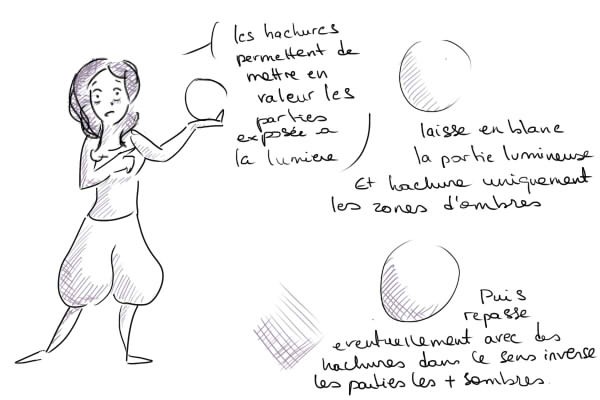 les hachures
permettent de
mettre en
valeur les
parties
exposée a
la lumiere
laisse en blanc
la partie lumineuse
Et hachure uniquement
les zones d'ombres
Puis
repasse
eventuellement avec des
hachures dans le sens inverse
les parties les + sombres.